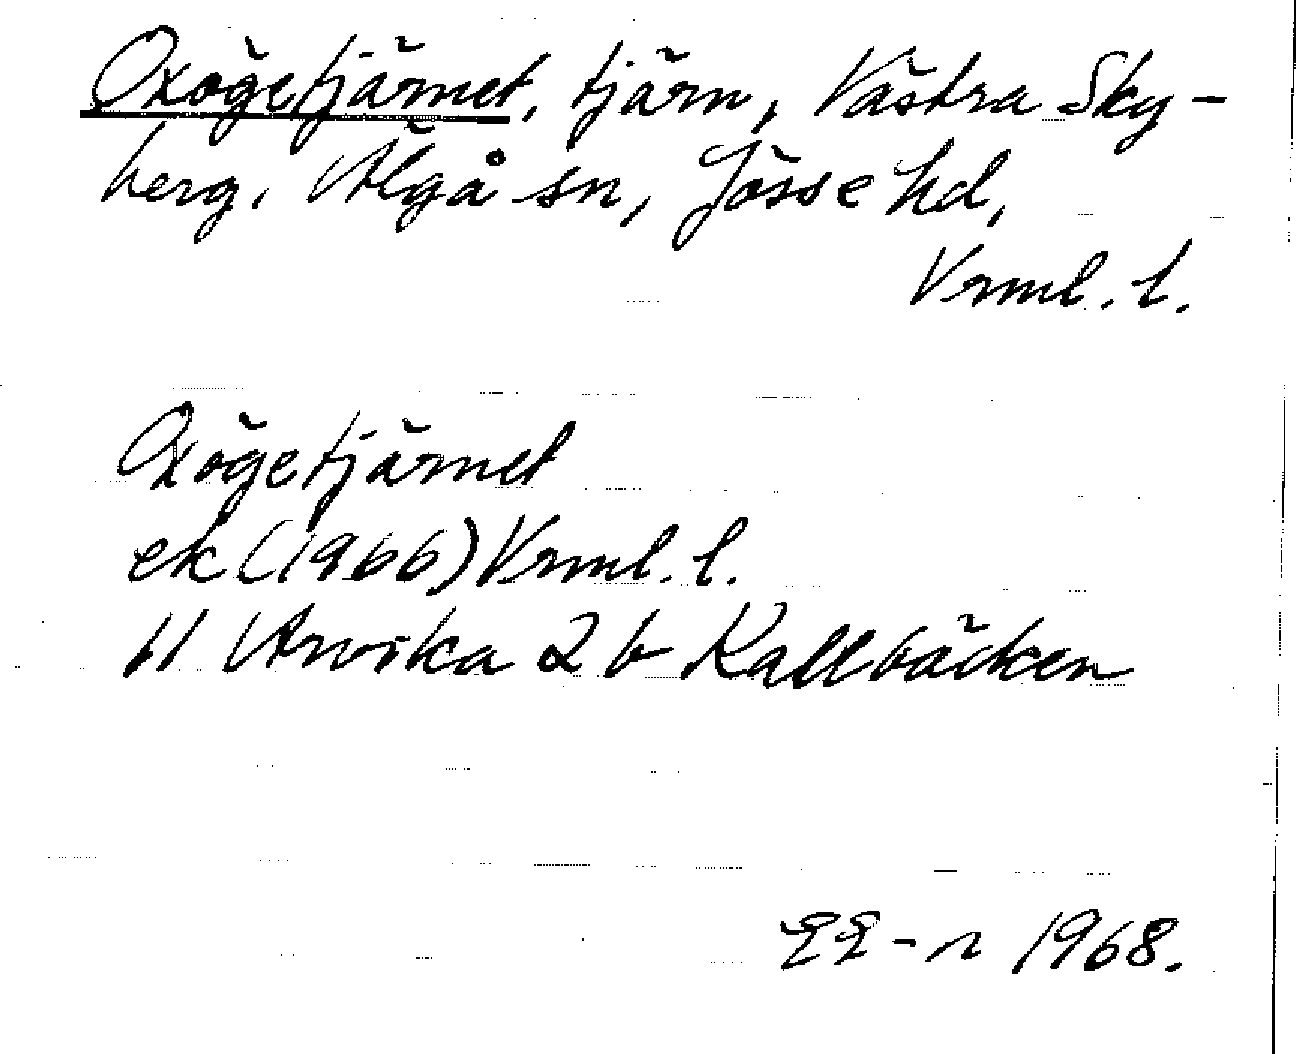 Oxögetjärnet, tjärn, Västra Sky-
berg, Älgå sn, Jösse hd,
Vrml. l.
Oxögetjärnet
ek (1966) Vrml. l.
11 Arvika 2 b Kallbäcken
EE-n 1968.